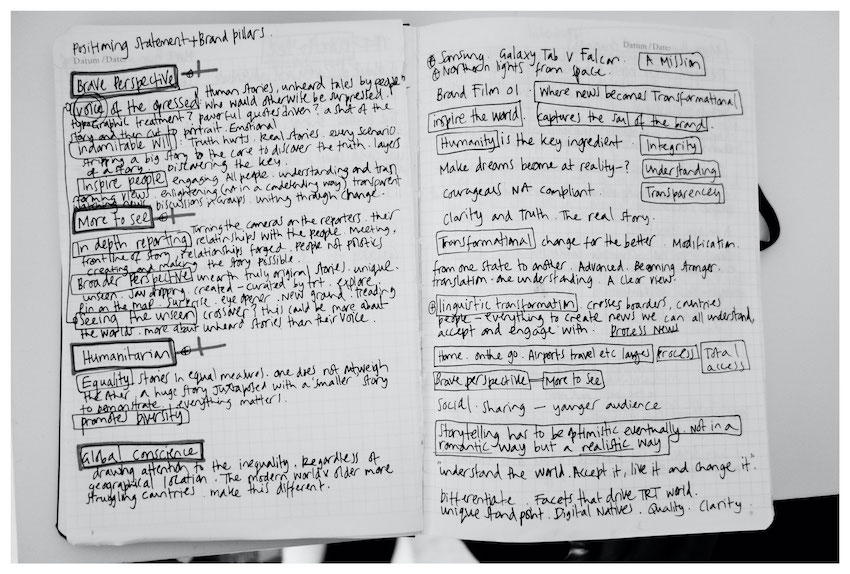 Positioning statement + Brand pillars.
Datum / Date:
Brave Perspective
Voice of the opressed Human stories, unheard tales by people
who would otherwise be surpressed!
typographic treatment? powerful quotes driven? a shot of the
story and then cut to portrait. Emotional
Indomitable Will: Truth hurts. Real stories. every scenario.
stripping a big story to the core to discover the truth. layers
of a story. discovering the key.
Inspire people engaging all people. understanding and tran
forming views enlightening (not in a condesending way) transparent
discussions groups. uniting through change.
More to see
In depth reporting Turning the cameras on the reporters. their
relationships with the people. Meeting,
front line of story relationships forged. People not politics
creating and making the story possible.
Broader Perspective unearth truly original stories. unique.
unseen. Jaw dropping. created - curated by trt. explore
pin on the map. surprise. eye opener. New ground. Treading
Seeing the unseen crossover? this could be more about
the worlds. more about unheard stories than their voice.
Humanitarian
Equality stories in equal measures. one does not outweigh
the other a huge story juxtaposed with a "smaller" story
to demonstrate. everything matters!
promotes diversity
Global conscience
drawing attention to the inequality. Regardless of
geographical location. The modern world v older more
struggling countries. make this different.
Datum / Date:
Samsung. Galaxy Tab v Falcon. A Mission
Northern lights - from space.
Brand Film 01. Where news becomes Transformational
inspire the world. captures the soul of the brand.
Humanity is the key ingredient. Integrity
Make dreams become at reality-? Understanding
courageous NA compliant. Transparencey
Clarity and Truth. The real story.
Transformational change for the better. Modification.
from one state to another. Advanced. Becoming stronger.
translation - one understanding. A clear view.
linguistic transformation. crosses boarders, countries
people - everything to create news we can all understand,
accept and engage with. Process News
Home. on the go. Airports travel etc Process Total
access
Brave perspective - More to see
Social. Sharing - younger audience
Storytelling has to be optimistic eventually. Not in a
romantic way but a realistic way
"understand the world. Accept it, live it and change it".
Differentiate. Facets that drive TRT world.
unique standpoint. Digital Natives. Quality. Clarity.